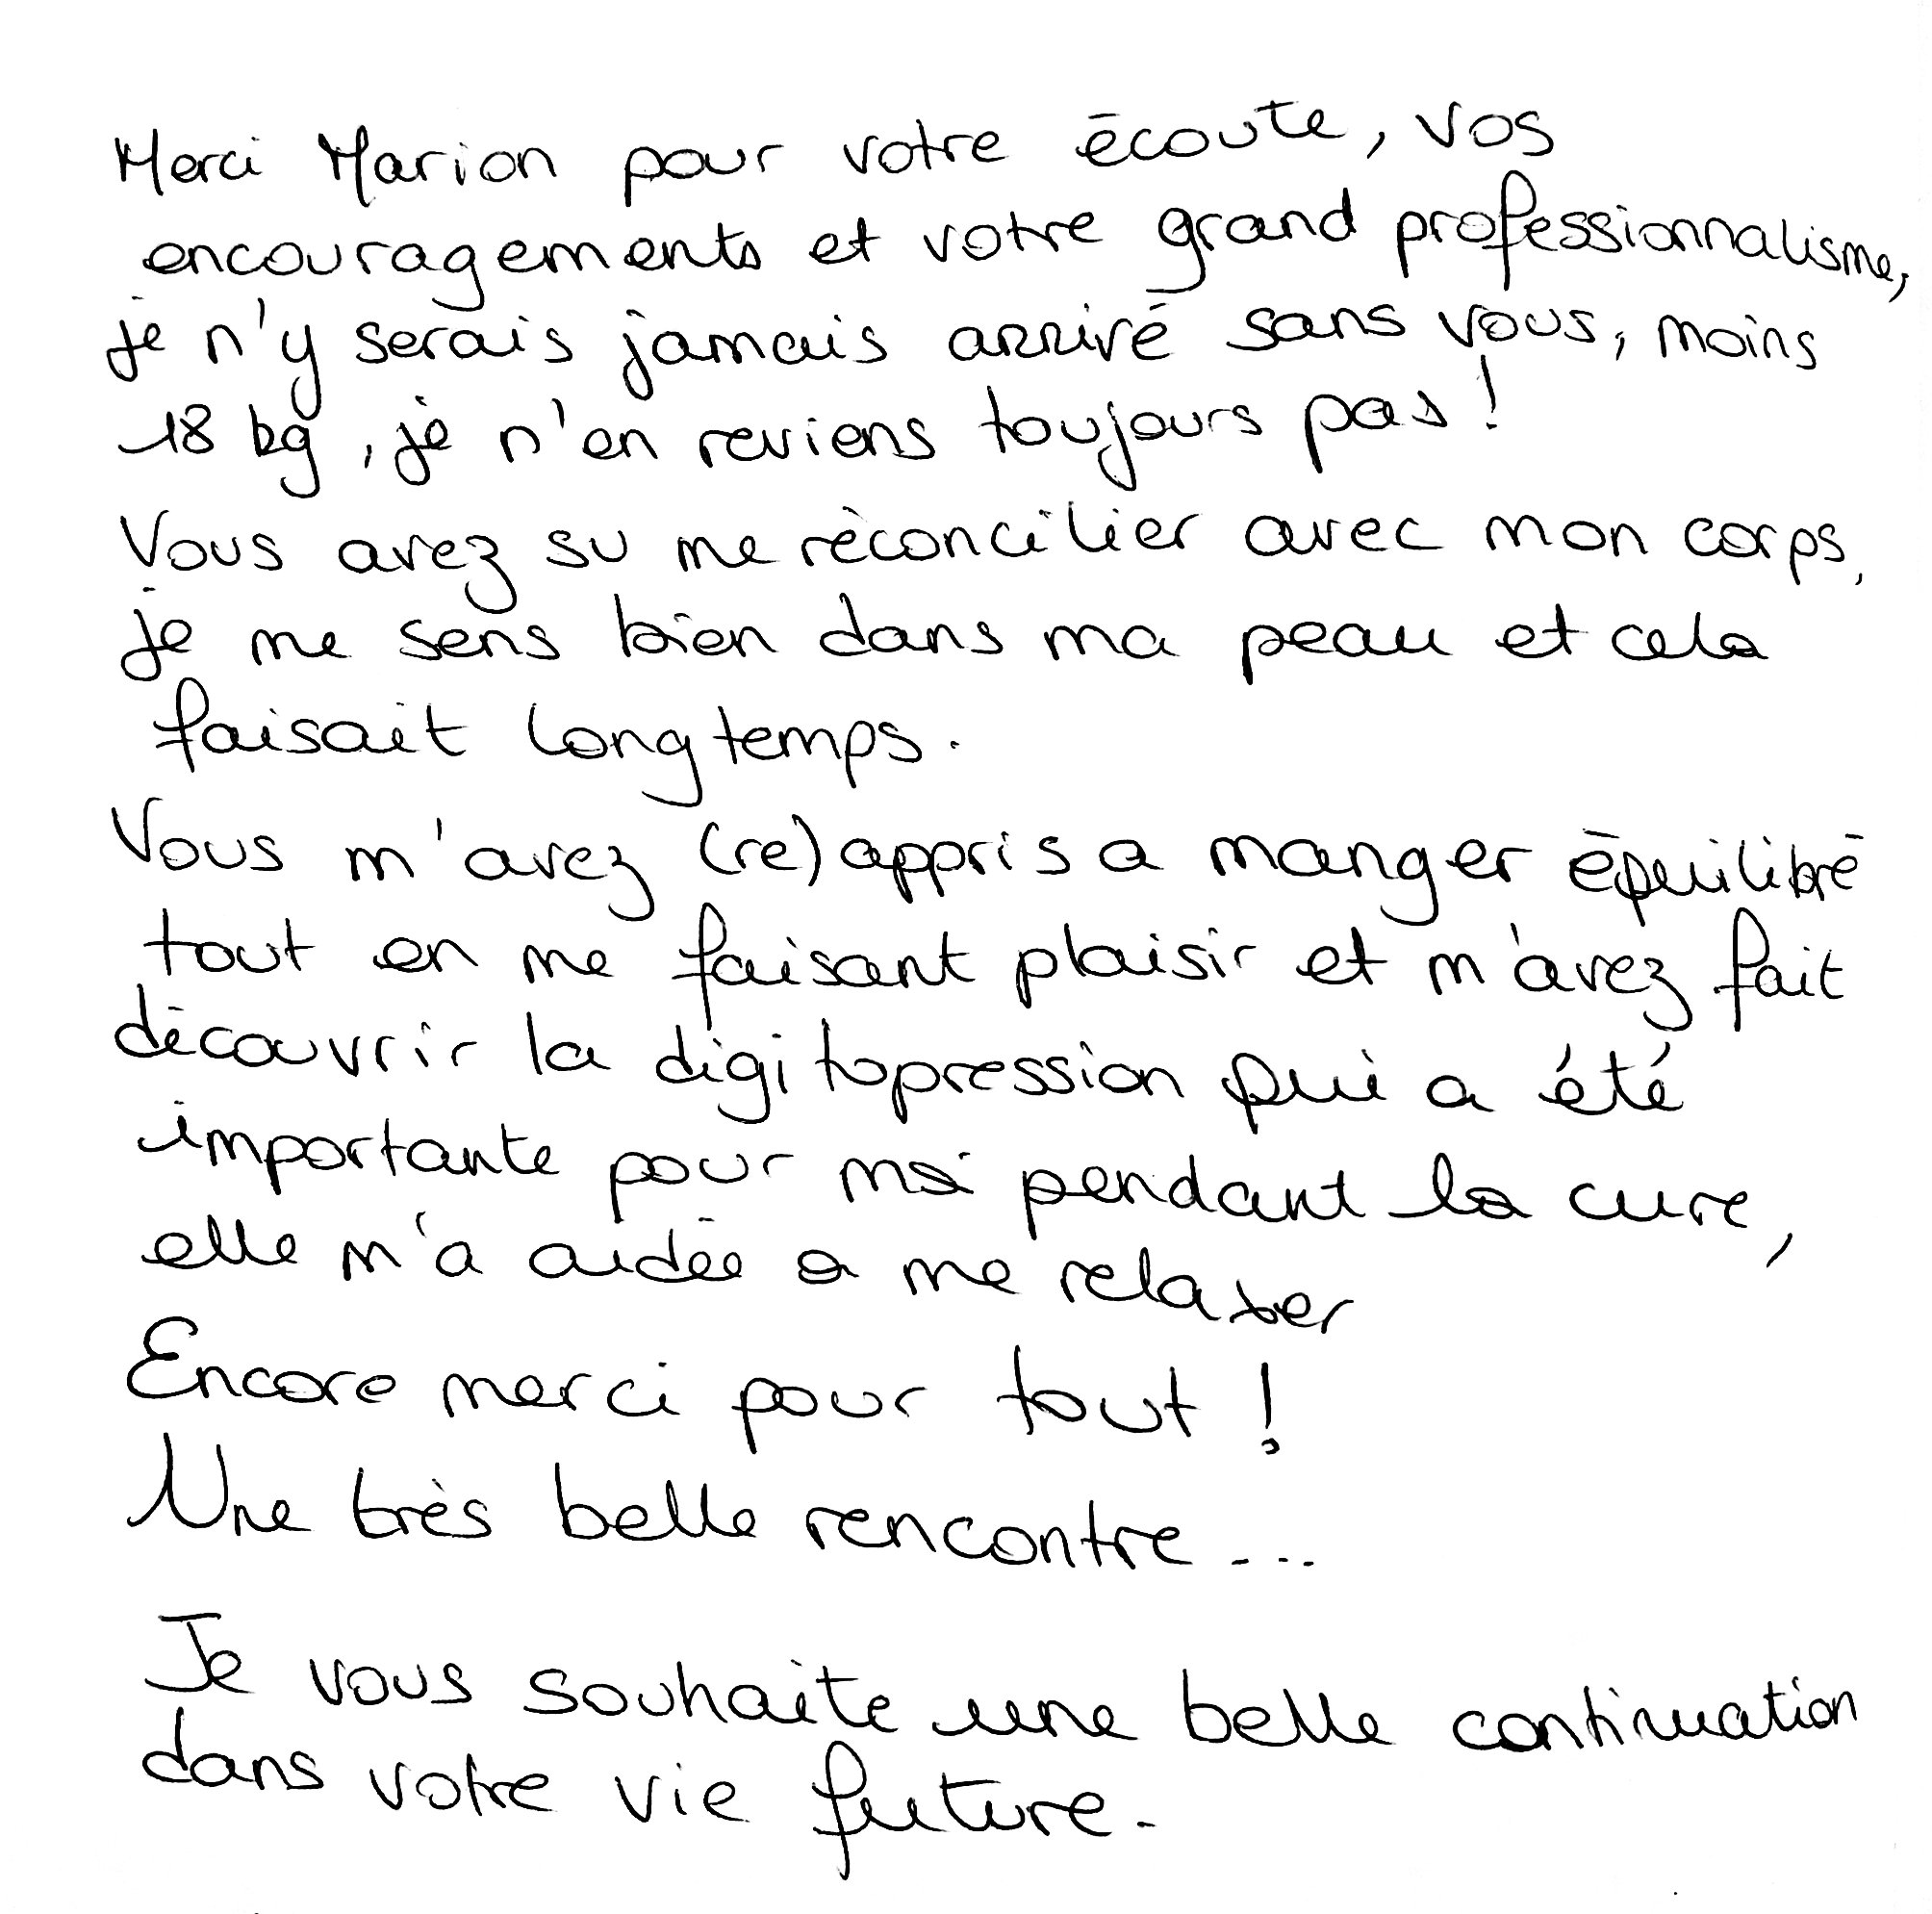 Merci Marion pour votre écoute, vos
encouragements et votre grand professionnalisme,
je n'y serais jamais arrivé sans vous, moins
18 kg, je n'en reviens toujours pas !
Vous avez su me réconcilier avec mon corps,
je me sens bien dans ma peau et cela
faisait longtemps.
Vous m'avez (re)appris a manger équilibré
tout en me faisant plaisir et m'avez fait
découvrir la digitopression qui a été
importante pour moi pendant la cure,
elle m'a aidée a me relaxer
Encore merci pour tout !
Une très belle rencontre....
Je vous souhaite une belle continuation
dans votre vie future.